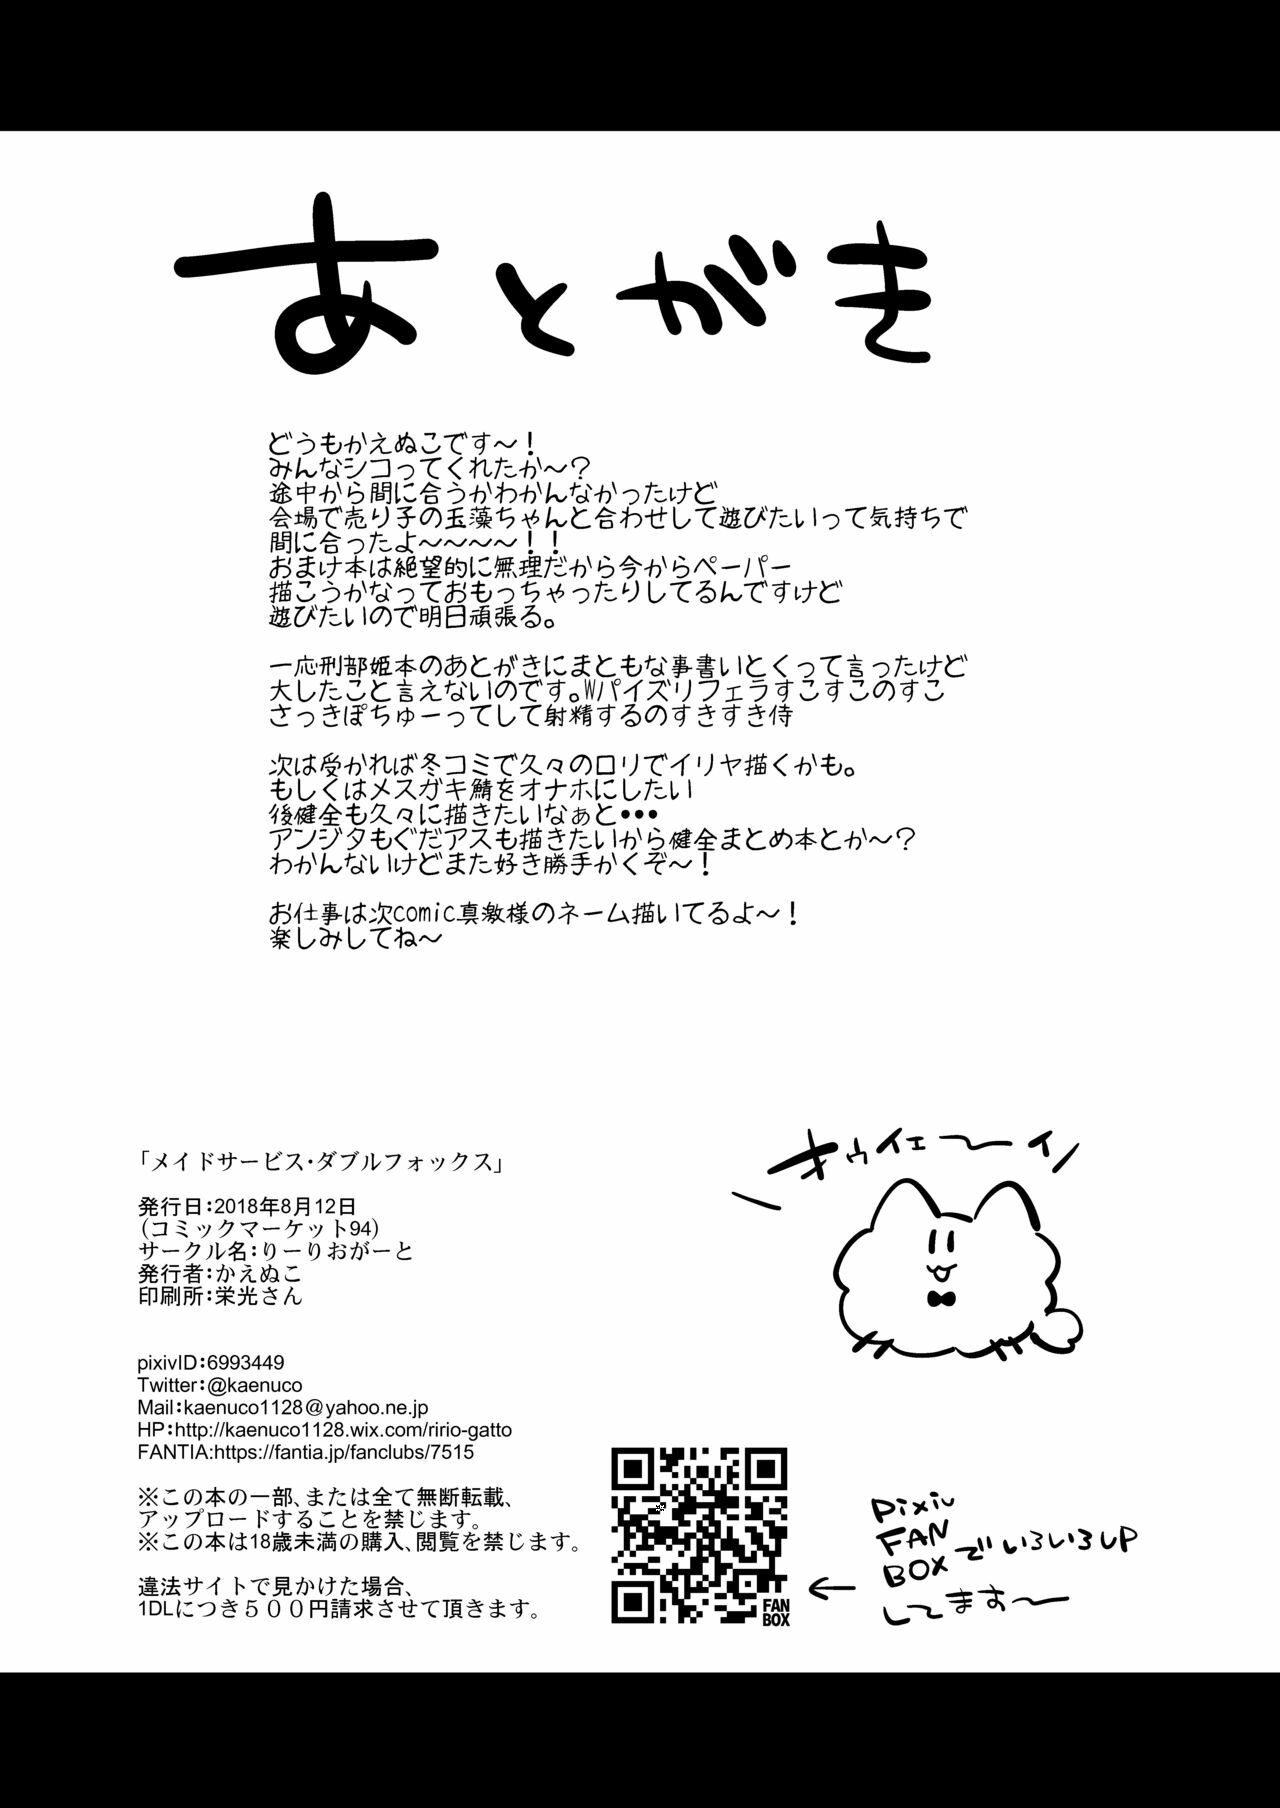 あとがき
どうもかえぬこです～！
みんなシコってくれたか～？
途中から間に合うかわかんなかったけど
会場で売り子の玉藻ちゃんと合わせして遊びたいって気持ちで
間に合ったよ～～～～！！
おまけ本は絶望的に無理だから今からペーパー
描こうかなっておもっちゃったりしてるんですけど
遊びたいので明日頑張る。
一応刑部姫本のあとがきにまともな事書いとくって言ったけど
大したこと言えないのです。Wパイズリフェラすこすこのすこ
さっきぽちゅーってして射精するのすきすき侍
後健全も久々に描きたいなぁと・・・
アンジタもぐだアスも描きたいから健全まとめ本とか～？
わかんないけどまた好き勝手かくぞ～！
お仕事は次comic真激様のネーム描いてるよ～！
楽しみしてね～
オゥイェーイ
「メイドサービス・ダブルフォックス」
発行日：2018年8月12日
（コミックマーケット94）
サークル名：りーりおがーと
発行者：かえぬこ
印刷所：栄光さん
pixivID：6993449
Twitter：@kaenuco
Mail：kaenuco1128@yahoo.ne.jp
HP：http://kaenuco1128.wix.com/ririo-gatto
FANTIA:https://fantia.jp/fanclubs/7515
※この本の一部、または全て無断転載、
アップロードすることを禁じます。
※この本は18歳未満の購入、閲覧を禁じます。
違法サイトで見かけた場合、
1DLにつき５００円請求させて頂きます。
FAN
BOX
pixiv
FAN
BOXでいろいろUP
してます～